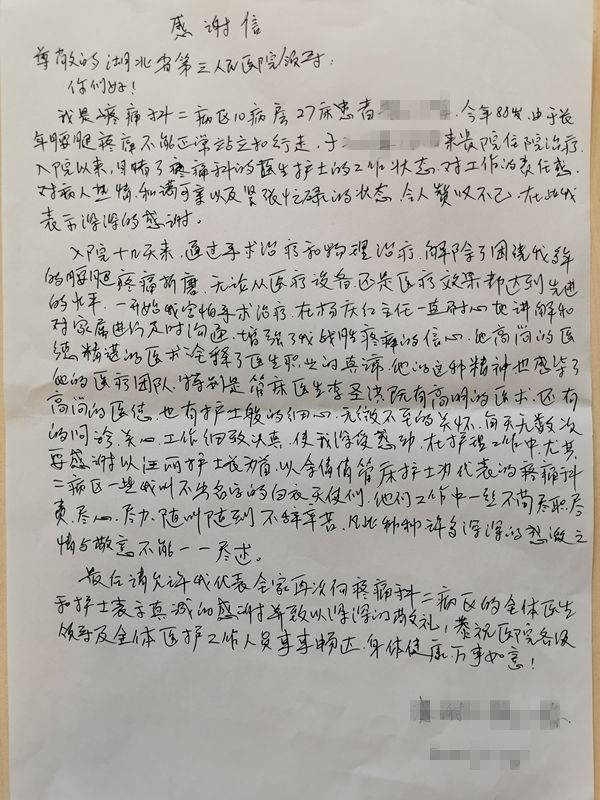 感谢信
尊敬的湖北省第三人民医院领导:
你们好!
我是疼痛科二病区10病房27床患者 今年88岁,由于长
年腰腿疼痛不能正常站立和行走,于 来贵院住院治疗,
入院以来,目睹了疼痛科的医生护士的工作状态,对工作的责任感,
对病人热情、和蔼可亲以及紧张忙碌的状态,令人赞叹不已,在此我
表示深深的感谢。
入院十几天来,通过手术治疗和物理治疗,解除了困绕我多年
的腰腿疼痛折磨,无论从医疗设备还是医疗效果都达到先进
的水平,一开始我害怕手术治疗,在杨庆仁主任一直耐心地讲解和
对家属进行及时沟通,增强了我战胜疼痛的信心,他高尚的医
德精湛的医术诠释了医生职业的真谛,他的这种精神也感染了
他的医疗团队,特别是管床医生李圣洪既有高明的医术,还有
高尚的医德,也有护士般的细心,无微不至的关怀,每天无数次
的问诊、关心,工作细致认真,使我深受感动,在护理工作中,尤其
要感谢以汪丽护士长为首,以余倩倩管床护士为代表的疼痛科
二病区一些我叫不出名字的白衣天使们,他们工作中一丝不苟尽职、尽
责、尽心、尽力,随叫随到不辞辛苦,凡此种种许多深深的感激之
情与敬意不能一一尽述。
最后请允许我代表全家再次向疼痛科二病区的全体医生
和护士表示真诚的感谢并致以深深的敬礼!恭祝医院各级
领导及全体医护工作人员事事畅达,身体健康,万事如意!